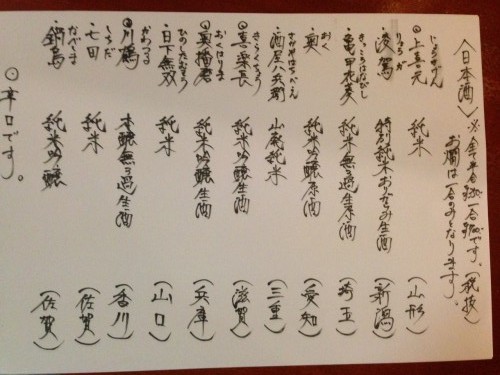 〈日本酒〉※全て半合 一合 です。(税抜)
お燗は一合のみとなります。
じょうきげん
◎上喜元 純米 (山形)
りょうが
・凌駕 特別純米おりがらみ生酒 (新潟)
きっこうはなびし
・亀甲花菱 純米無ろ過生原酒 (埼玉)
おく
・奥 純米吟醸原酒 (愛知)
さかやはちべえ
・酒屋八兵衛 山廃純米 (三重)
きらくちょう
◎喜楽長 純米吟醸生酒 (滋賀)
おくはりま
◎奥播磨 純米吟醸生酒 (兵庫)
ひのしたむそう
・日下無双 純米 (山口)
かわつる
◎川鶴 本醸無ろ過生酒 (香川)
しちだ
・七田 純米 (佐賀)
なべしま
・鍋島 純米吟醸 (佐賀)
◎辛口です。